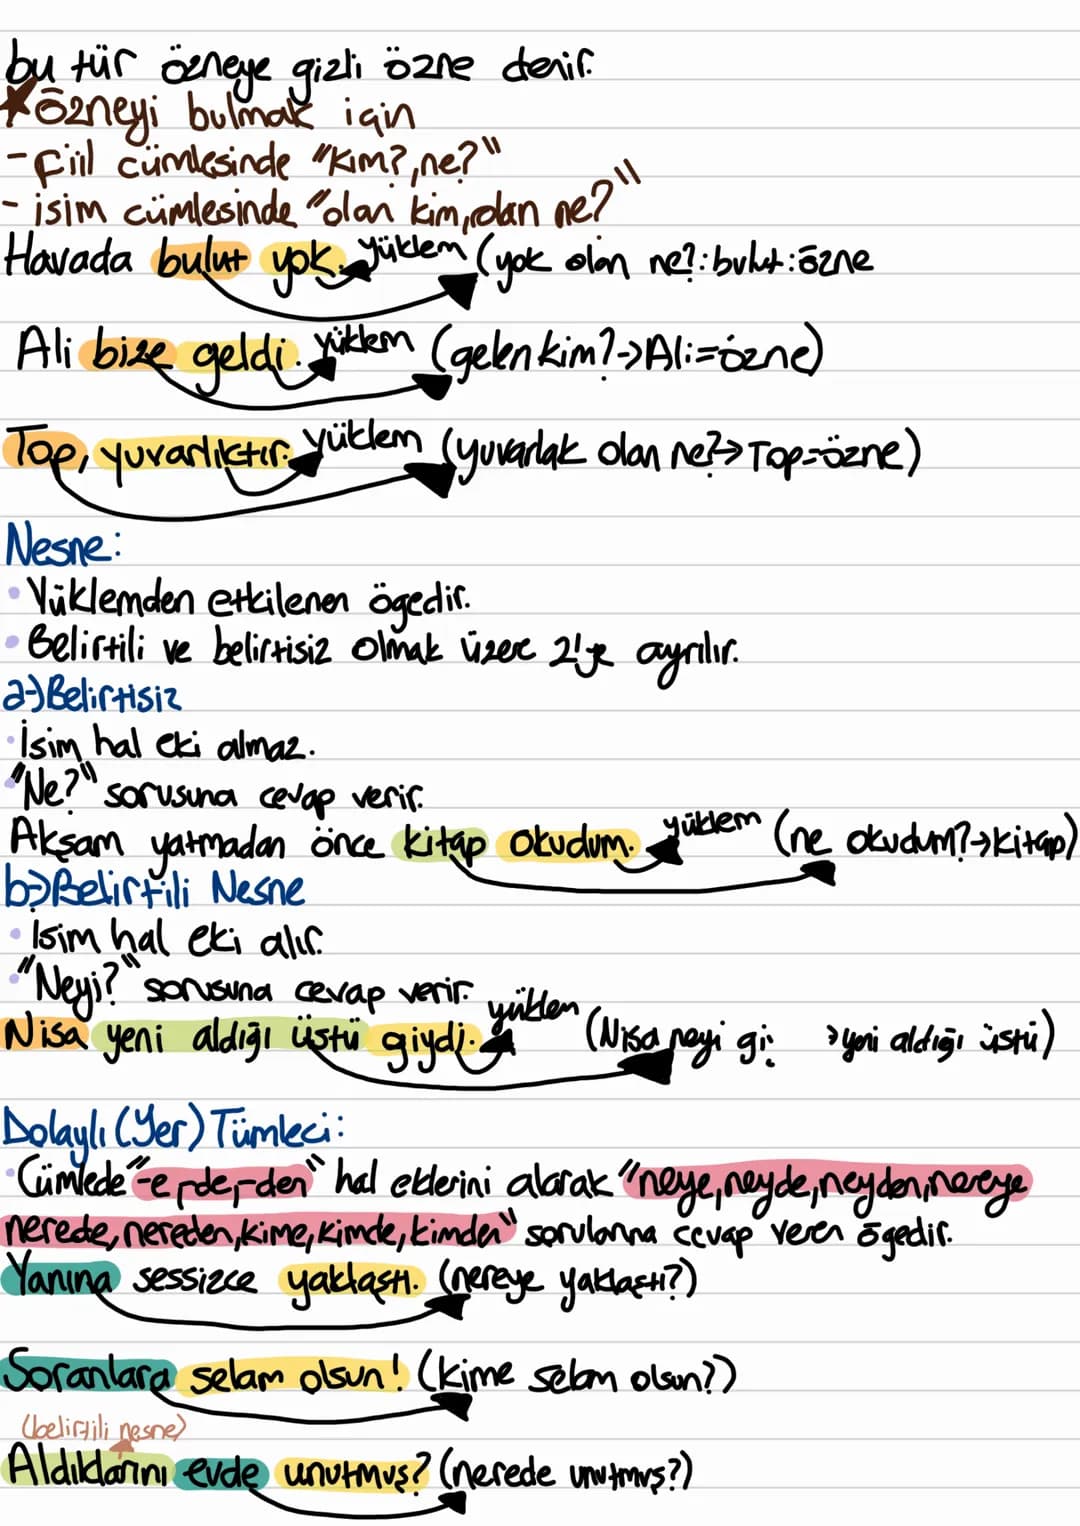 bu tür özneye gizli özne denir.
★Özneyi bulmak için
-Fiil cümlesinde "Kim?,ne?"
-isim cümlesinde "olan kim,olan ne?"
Havada bulut yok. yüklem (yok olan ne?:bulut:özne
Ali bize geldi. yüklem (gelen kim?->Ali:=özne)
Top, yuvarlıktır. yüklem (yuvarlak olan ne?->Top=özne)
Nesne:
•Yüklemden etkilenen ögedir.
•Belirtili ve belirtisiz olmak üzere 2'ye ayrılır.
a-)Belirtisiz
•İsim hal eki almaz.
•"Ne?" sorusuna cevap verir.
Akşam yatmadan önce kitap okudum. yüklem (ne okudum?->kitap)
b-)Belirtili Nesne
•İsim hal eki alır.
•"Neyi?" sorusuna cevap verir.
Nisa yeni aldığı üstü giydi. yüklem (Nisa neyi gi >yeni aldığı üstü)
Dolaylı (Yer) Tümleci:
•Cümlede "-e,-de,-den" hal eklerini alarak "neye,neyde,neyden,nereye
nerede,nereden,kime,kimde,kimden" sorularına cevap veren ögedir.
Yanına sessizce yaklaştı. (nereye yaklaştı?)
Soranlara selam olsun! (kime selam olsun?)
(belirtili nesne)
Aldıklarını evde unutmuş? (nerede unutmuş?)